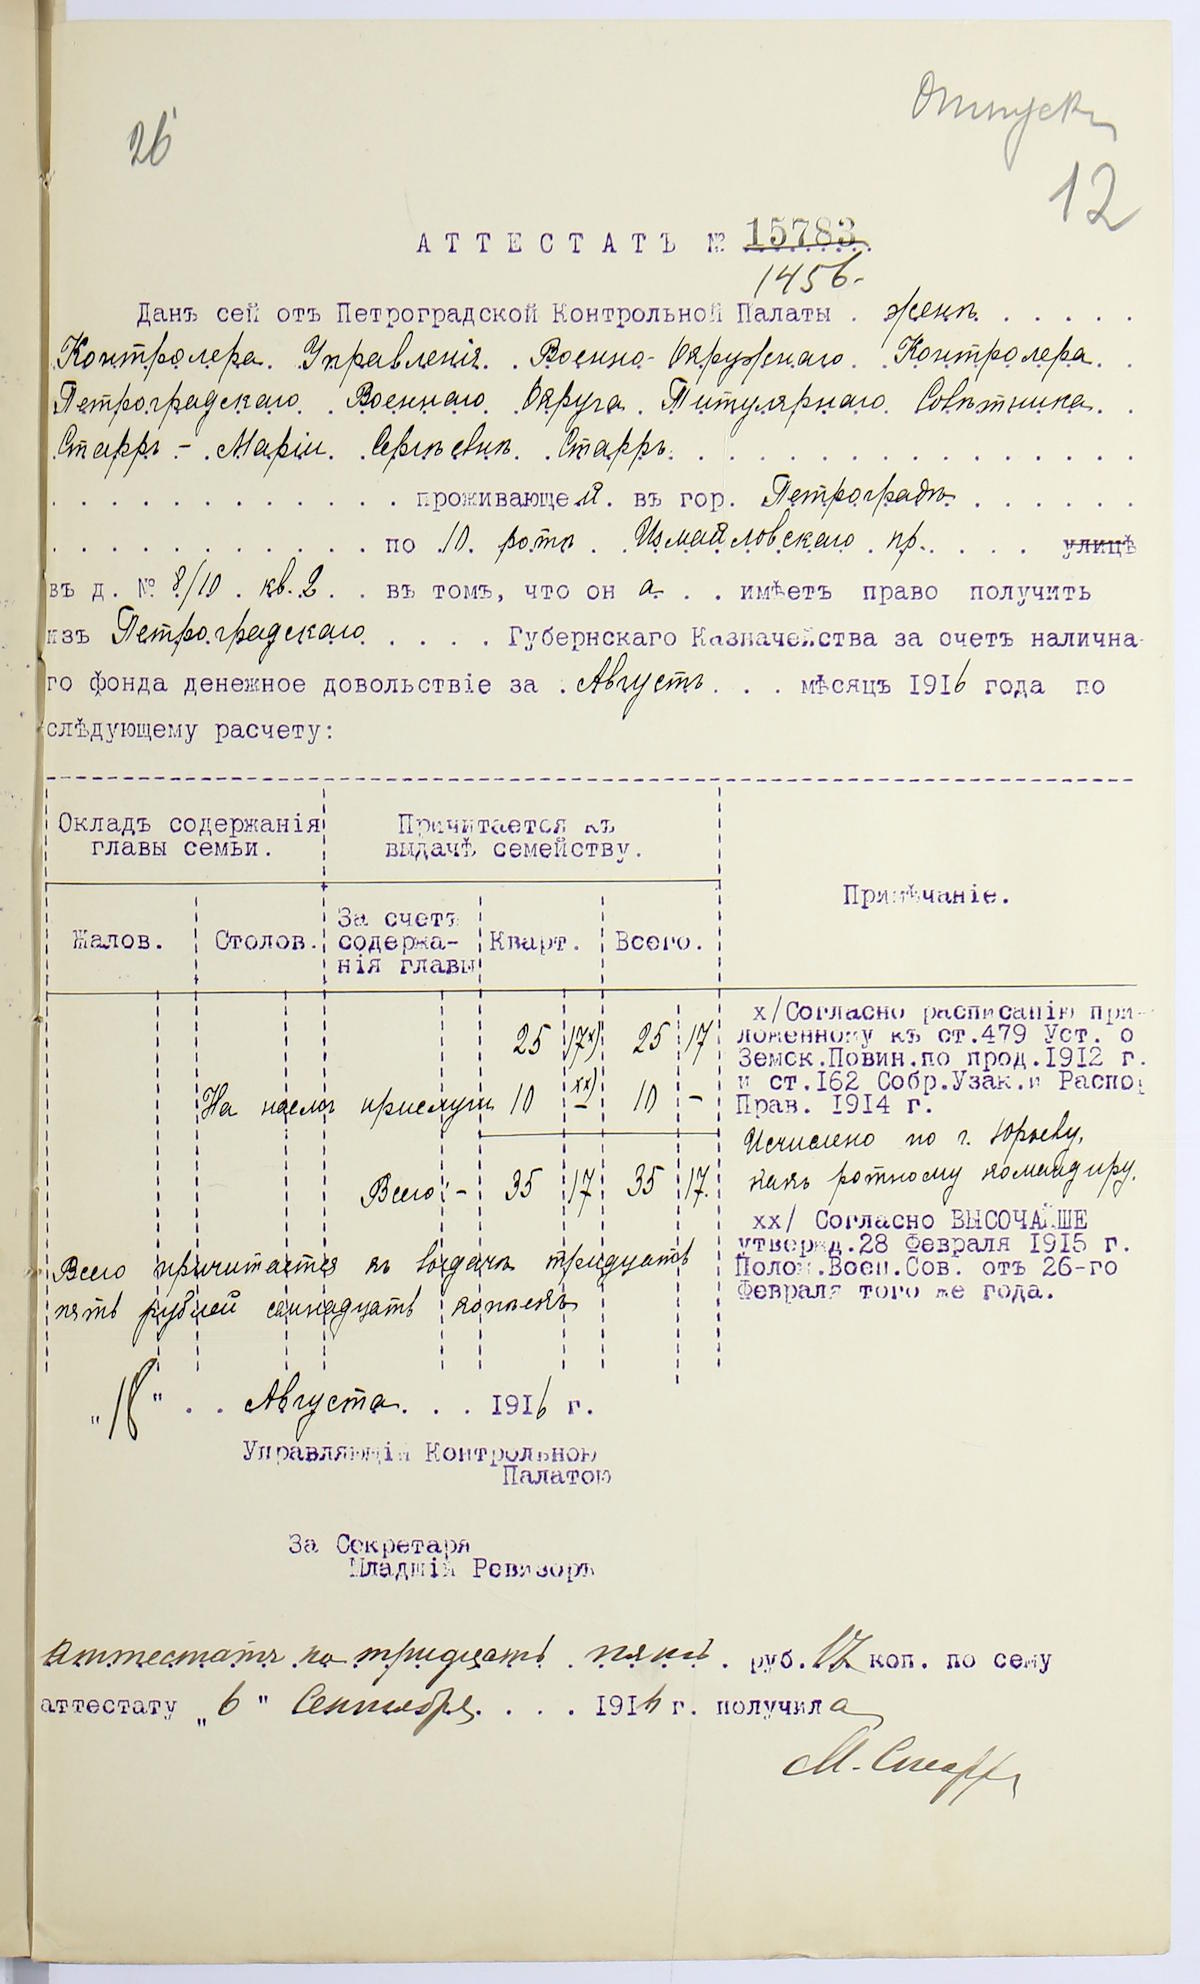 Отпускъ
26
12
АТТЕСТАТЪ № 15783
1456.
Данъ сей отъ Петроградской Контрольной Палаты . женѣ . . . . .
Контролера. Управленiя. . Военно-Окружнаго. . Контролера. .
Петроградскаго. . Военнаго. Округа. Титулярнаго. Совѣтника. .
Старръ - . Марiи. . Сергѣевнѣ. . Старръ. . . . . . . . . . . . . . . .
. . . . . . . . . . . . . . проживающей. въ гор. Петроградѣ . . . . . .
. . . . . . . . . . . . . по 10. ротѣ . Измайловскаго . пр. . . . . улицѣ
въ д. № 8/10 . кв. 2 . . въ томъ, что он а . . имѣетъ право получить
изъ Петроградскаго . . . . Губернскаго Казначейства за счетъ налична-
го фонда денежное довольствiе за . Августъ . . . мѣсяцъ 1916 года по
слѣдующему расчету:
Окладъ содержанiя главы семьи.
Причитается къ выдачѣ семейству.
Примѣчанiе.
Жалов.
Столов.
За счетъ содержа-
нiя главы
Кварт.
Всего.
25 17х) 25 17
На наемъ прислуги 10 хх) - 10 -
Всего: - 35 17 35 17.
х/Согласно расписанiю при-
ложенному къ ст.479 Уст. о
Земск.Повин.по прод.1912 г.
и ст.162 Собр.Узак.и Распор
Прав. 1914 г.
Исчислено по г. Юрьеву,
какъ ротному командиру.
хх/ Согласно ВЫСОЧАЙШЕ
утвержд.28 Февраля 1915 г.
Полож.Воен.Сов. отъ 26-го
Февраля того же года.
Всего причитается къ выдачѣ тридцать
пять рублей семнадцать копѣекъ
"18" . . Августа . . . 1916 г.
Управляющiй Контрольною
Палатою
За Секретаря
Младшiй Ревизоръ
Аттестатъ на тридцать . пять . руб. 17 коп. по сему
аттестату "6" Сентября . . . . 1916 г. получила
М. Старръ